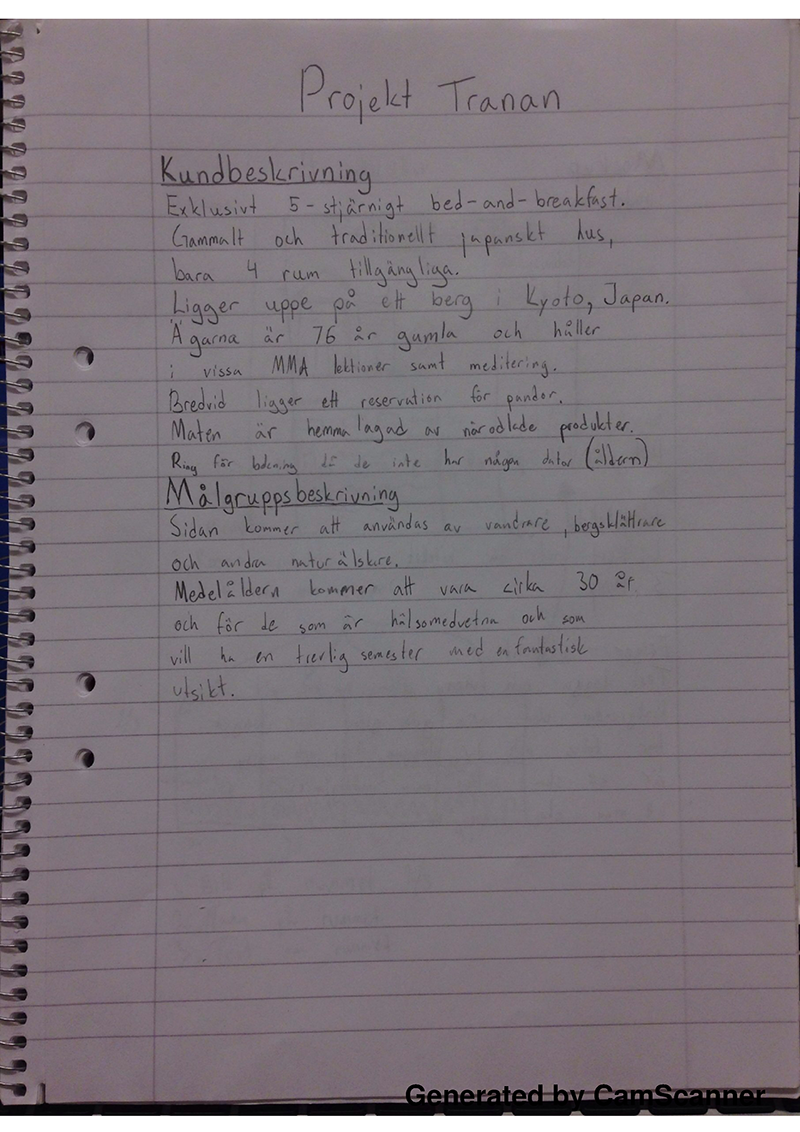 Projekt Tranan
Kundbeskrivning
Exklusivt 5-stjärnigt bed-and-breakfast.
Gammalt och traditionellt japanskt hus,
bara 4 rum tillgängliga.
Ligger uppe på ett berg i Kyoto, Japan.
Ägarna är 76 år gamla och håller
i vissa MMA lektioner samt meditering.
Bredvid ligger ett reservation för pandor.
Maten är hemmalagad av närodlade produkter.
Ring för bokning då de inte har någon dator (åldern)
Målgruppsbeskrivning
Sidan kommer att användas av vandrare, bergsklättrare
och andra naturälskare.
Medelåldern kommer att vara cirka 30 år
och för de som är hälsomedvetna och som
vill ha en trevlig semester med en fantastisk
utsikt.
Generated by CamScanner